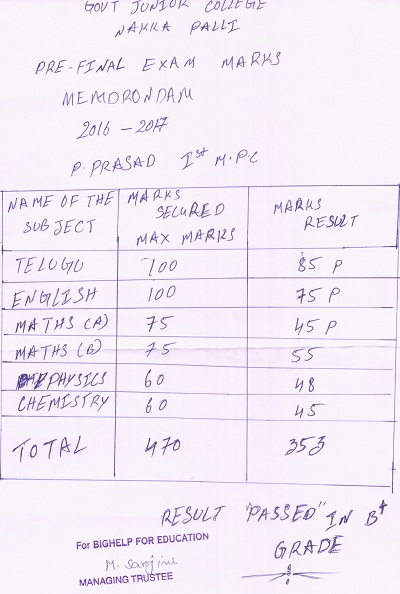 GOVT JUNIOR COLLEGE
NAKKA PALLI
PRE-FINAL EXAM MARKS
MEMORONDAM
2016 - 2017
P. PRASAD Ist M.P.C
NAME OF THE SUBJECT MARKS SECURED MAX MARKS MARKS RESULT
TELUGU 100 85 P
ENGLISH 100 75 P
MATHS (A) 75 45 P
MATHS (B) 75 55
PHYSICS 60 48
CHEMISTRY 60 45
TOTAL 470 353
RESULT "PASSED" IN B+
GRADE
For BIGHELP FOR EDUCATION
M. Sarojini
MANAGING TRUSTEE